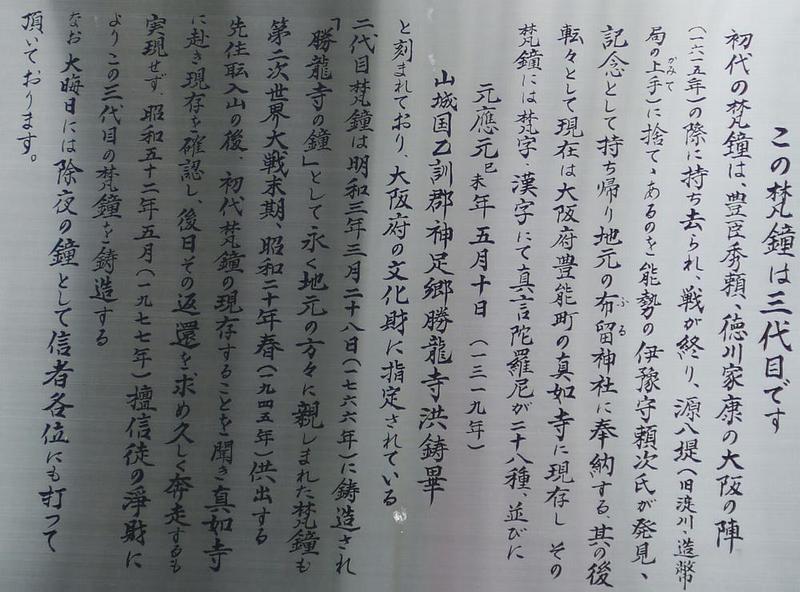 この梵鐘は三代目です
初代の梵鐘は、豊臣秀頼、徳川家康の大阪の陣
(一六一五年)の際に持ち去られ、戦が終り、源八堤(旧淀川、造幣
局の上手)に捨てゝあるのを能勢の伊豫守頼次氏が発見、
かみて
記念として持ち帰り地元の布留神社に奉納する、其の後
ふる
転々として現在は大阪府豊能町の真如寺に現存し その
梵鐘には梵字、漢字にて真言陀羅尼が二十八種、並びに
元應元己未年五月十日(一三一九年)
山城国乙訓郡神足郷勝龍寺洪鋳畢
と刻まれており、大阪府の文化財に指定されている
二代目梵鐘は明和三年三月二十八日(一七六六年)に鋳造され
「勝龍寺の鐘」として永く地元の方々に親しまれた梵鐘も
第二次世界大戦末期、昭和二十年春(一九四五年)供出する
先住転入山の後、初代梵鐘の現存することを聞き真如寺
に赴き現存を確認し、後日その返還を求め久しく奔走するも
実現せず、昭和五十二年五月(一九七七年)檀信徒の浄財に
よりこの三代目の梵鐘を鋳造する
なお大晦日には除夜の鐘として信者各位にも打って
頂いております。